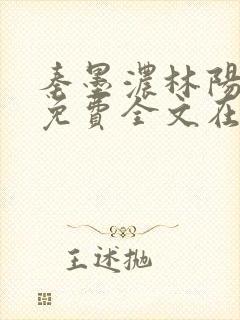 秦墨濃林陽
免費全文在
王述抛